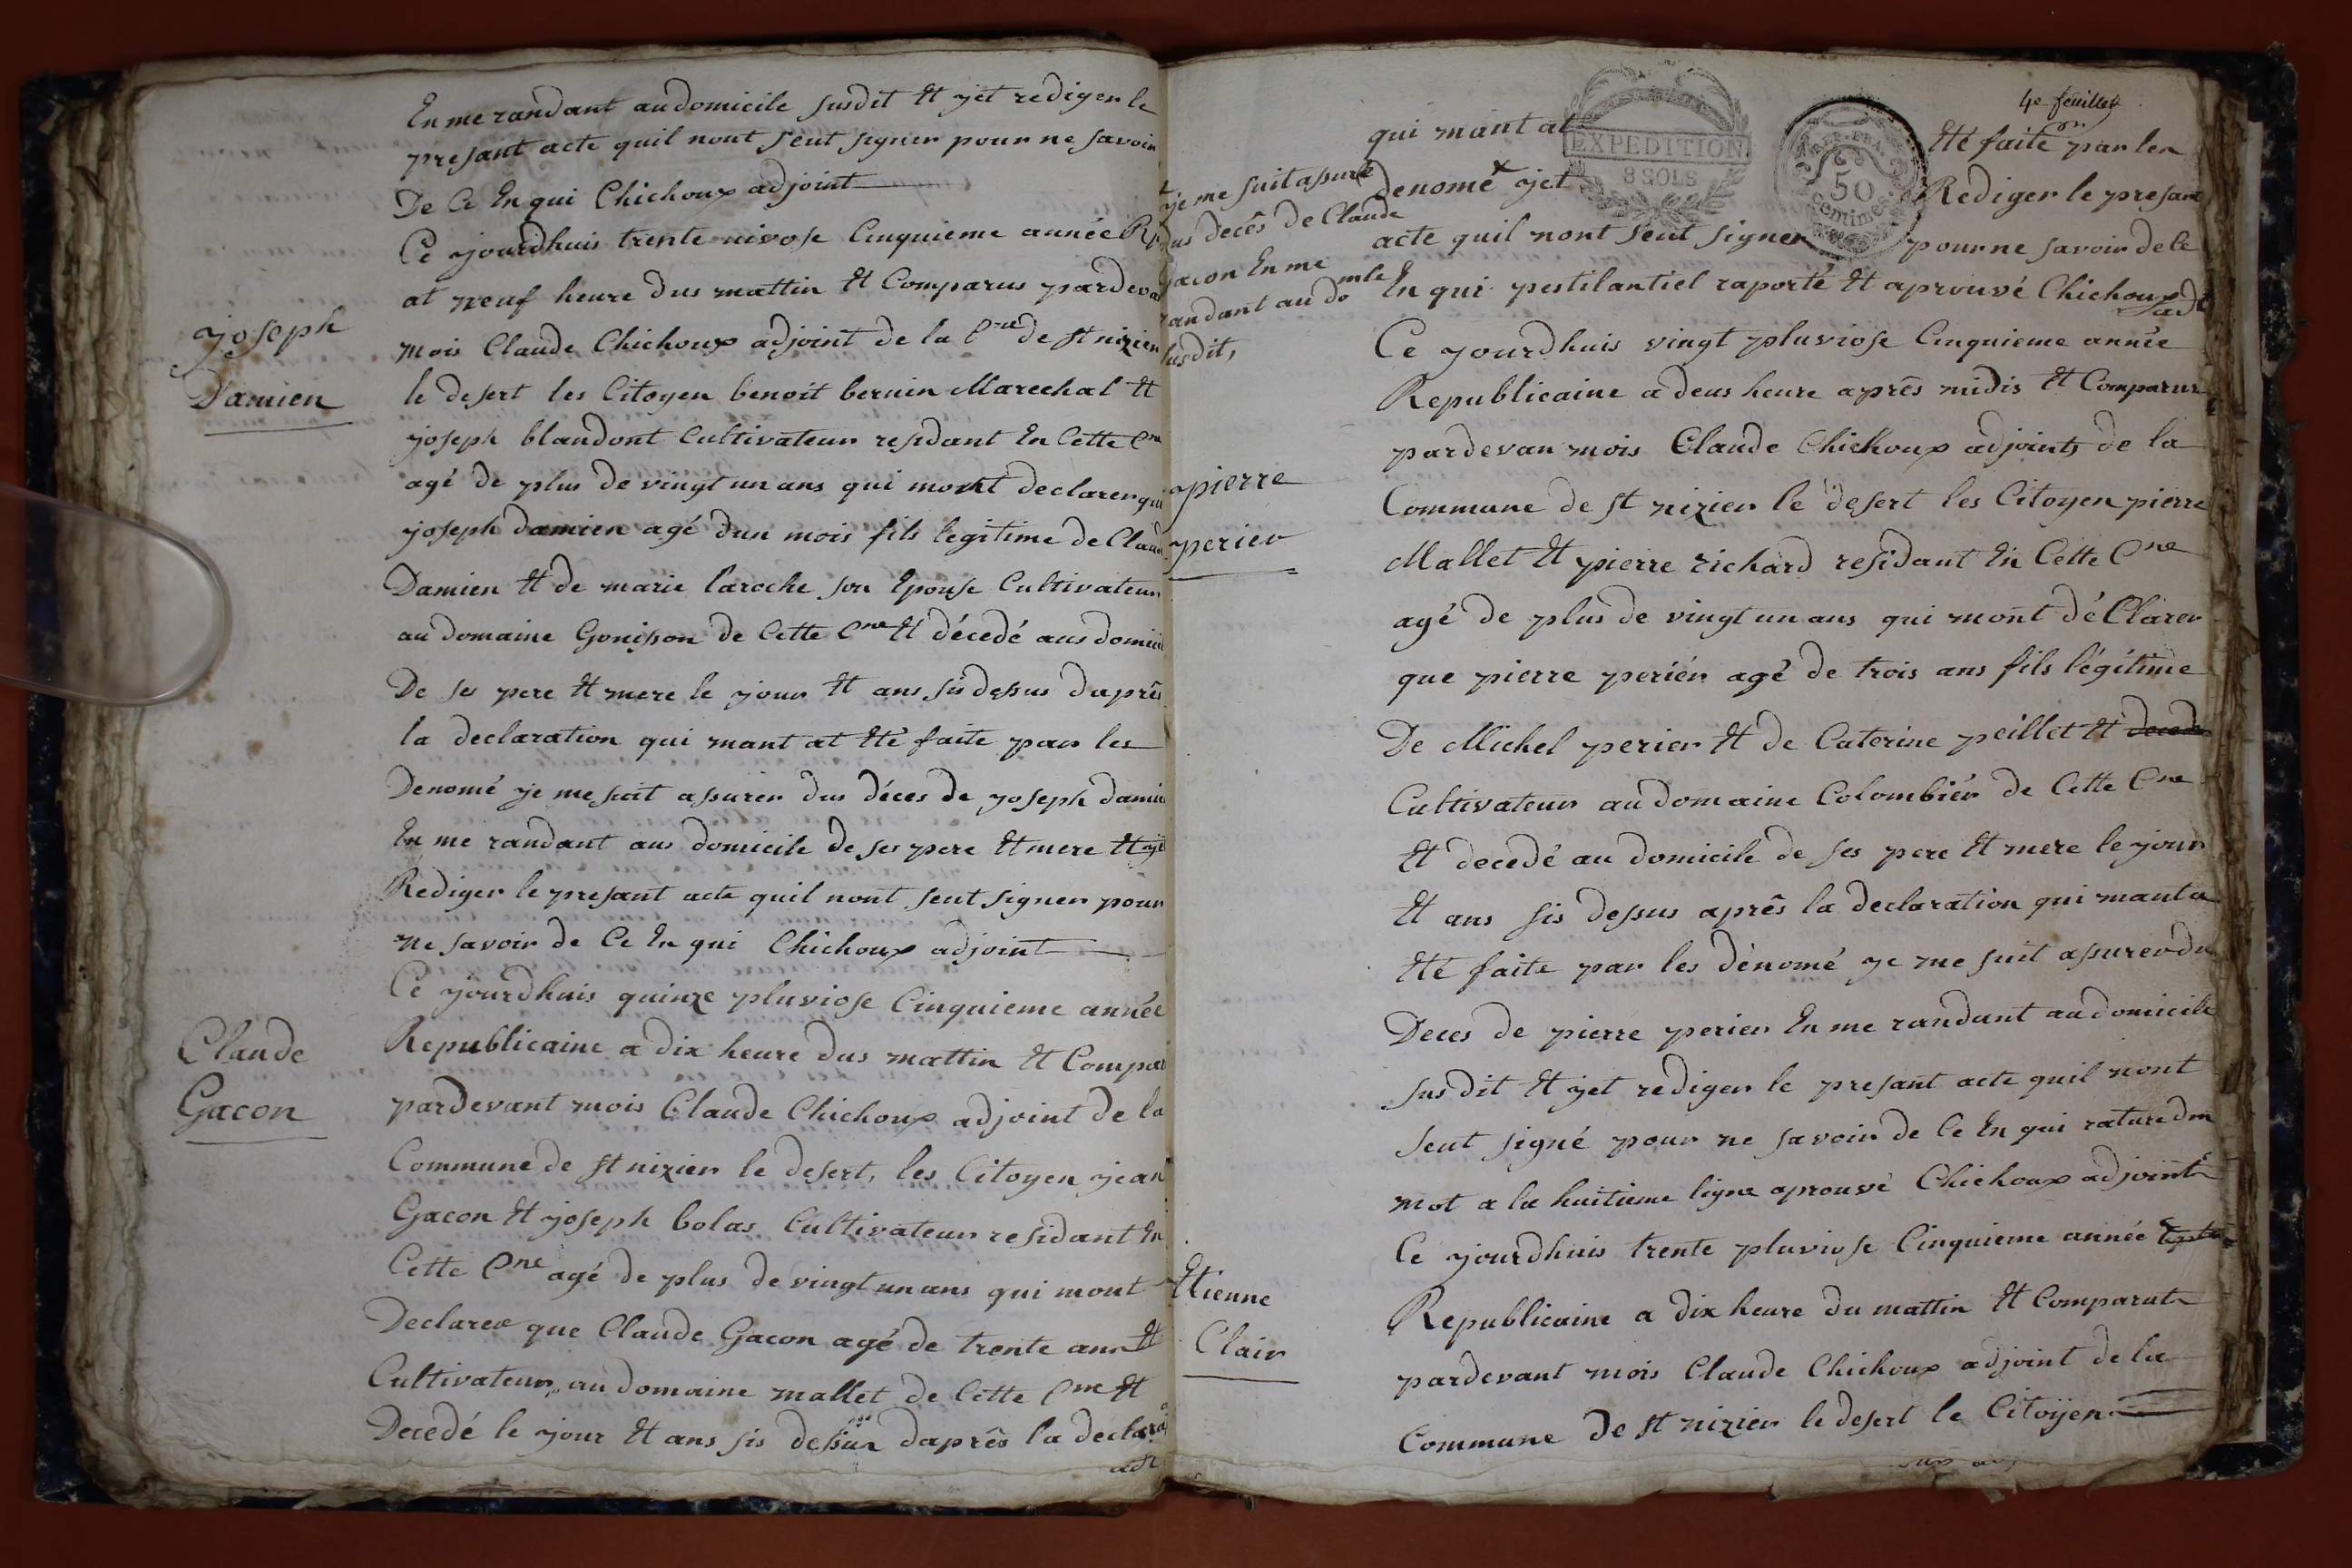 En me randant au domicile susdit Et yet rediger le
presant acte quil nont seut signer pour ne savoir
De Ce En qui Chichoux adjoint
Ce yourdhuis trente nivose Cinquieme année Rp
at neuf heure dus mattin Et Comparus pardeva
mois Claude Chichoux adjoint de la Cne de st nizier
le desert les Citoyen benoit bernin Marechal Et
joseph blandont Cultivateur residant En Cette Cne
agé de plus de vingt un ans qui mont declarer que
joseph damien agé dun mois fils legitime de Claud
Damien Et de marie laroche son Epouse Cultivateur
au domaine Gonisson de Cette Cne Et décedé aus domicil
De ses pere Et mere le jour Et ans sis dessus daprês
la declaration qui mant at Eté faite par les
Denomé je me suit assurer dus déces de joseph damie
En me randant aus domicile de ses pere Et mere Et yet
Rediger le presant acte quil nont seut signer pour
ne savoir de Ce En qui Chichoux adjoint
Ce yourdhuis quinze pluviose Cinquieme année
Republicaine a dix heure dus mattin Et Compar
pardevant mois Claude Chichoux adjoint de la
Commune de st nizier le desert, les Citoyen jean
Gacon Et joseph bolas Cultivateur residant En
Cette Cne agé de plus de vingt un ans qui mont
Declarer que Claude Gacon agé de trente ans Et
Cultivateur au domaine mallet de Cette Cne Et
Decedé le jour Et ans sis dessus daprês la declara
joseph
Damien
Claude
Gacon
4e feuillet
qui mant at Eté faite par les
denomé yet Rediger le presant
acte quil nont seut signer pour ne savoir de Ce
En qui pestilantiel raporté Et aprouvé Chichoux adj
Ce yourdhuis vingt pluviose Cinquieme année
Republicaine a deus heure aprês midis Et Comparus
pardevan mois Claude Chichoux adjoint de la
Commune de st nizier le desert les Citoyen pierre
Mallet Et pierre richard residant En Cette Cne
agé de plus de vingt un ans qui mont déClarer
que pierre periér agé de trois ans fils légitime
De Michel perier Et de Caterine peillet Et decedé
Cultivateur au domaine Colombiér de Cette Cne
Et decedé au domicile de ses pere Et mere le jour
Et ans sis dessus aprês la declaration qui mant a
Eté faite par les dénomé je me suit assurer du
Deces de pierre perier En me randant au domicile
susdit Et yet rediger le presant acte quil nont
seut signé pour ne savoir de Ce En qui rature dun
mot a la huitieme ligne aprouvé Chichoux adjoint
Ce yourdhuis trente pluviose Cinquieme année
Republicaine a dix heure du mattin Et Comparut
pardevant mois Claude Chichoux adjoint de la
Commune de st nizier le desert le Citoÿen
je me suit assuré
dus decês de Claude
Gacon En me
randant au domle
susdit,
pierre
perier
Etienne
Clair
EXPEDITION
8 SOLS
50
centimes